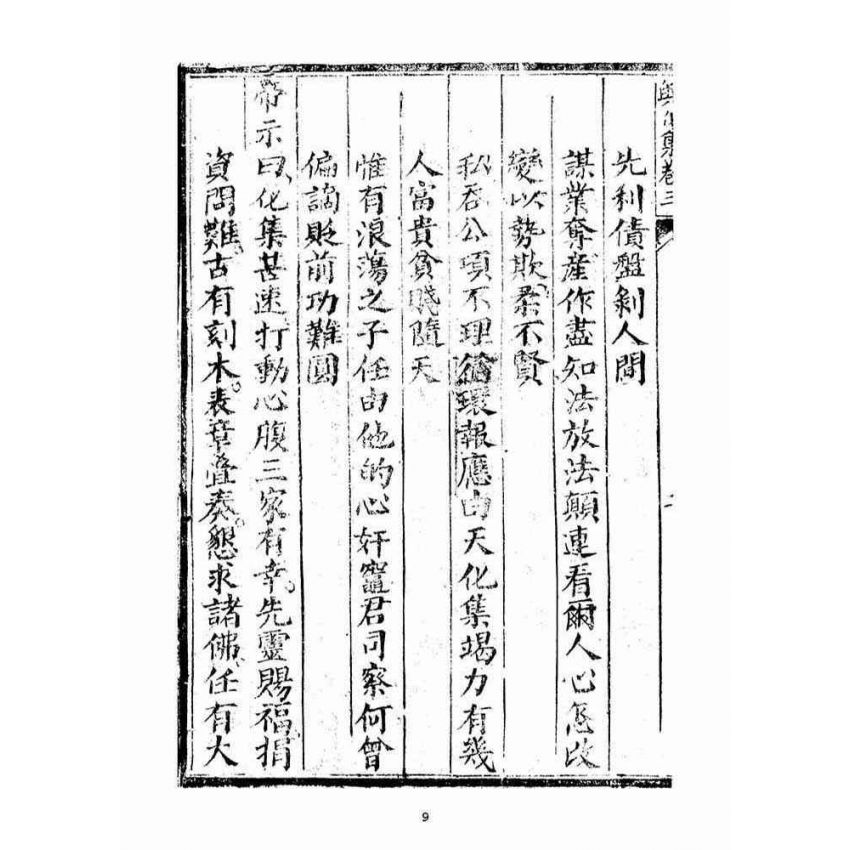 集卷三
先利債盤剝人間
謀業奪産作盡知法放法顛連看爾人心怎改
變以勢欺柔不賢
私吞公項不理循環報應由天化集竭力有幾
人富貴貧賤隨天
惟有浪蕩之子任由他的心奸竈君司察何曾
偏謫貶前功難圓
帝示曰化集甚速打動心腹三家有幸先靈賜福捐
資問難古有刻木表章叠奏懇求諸佛任有大
9